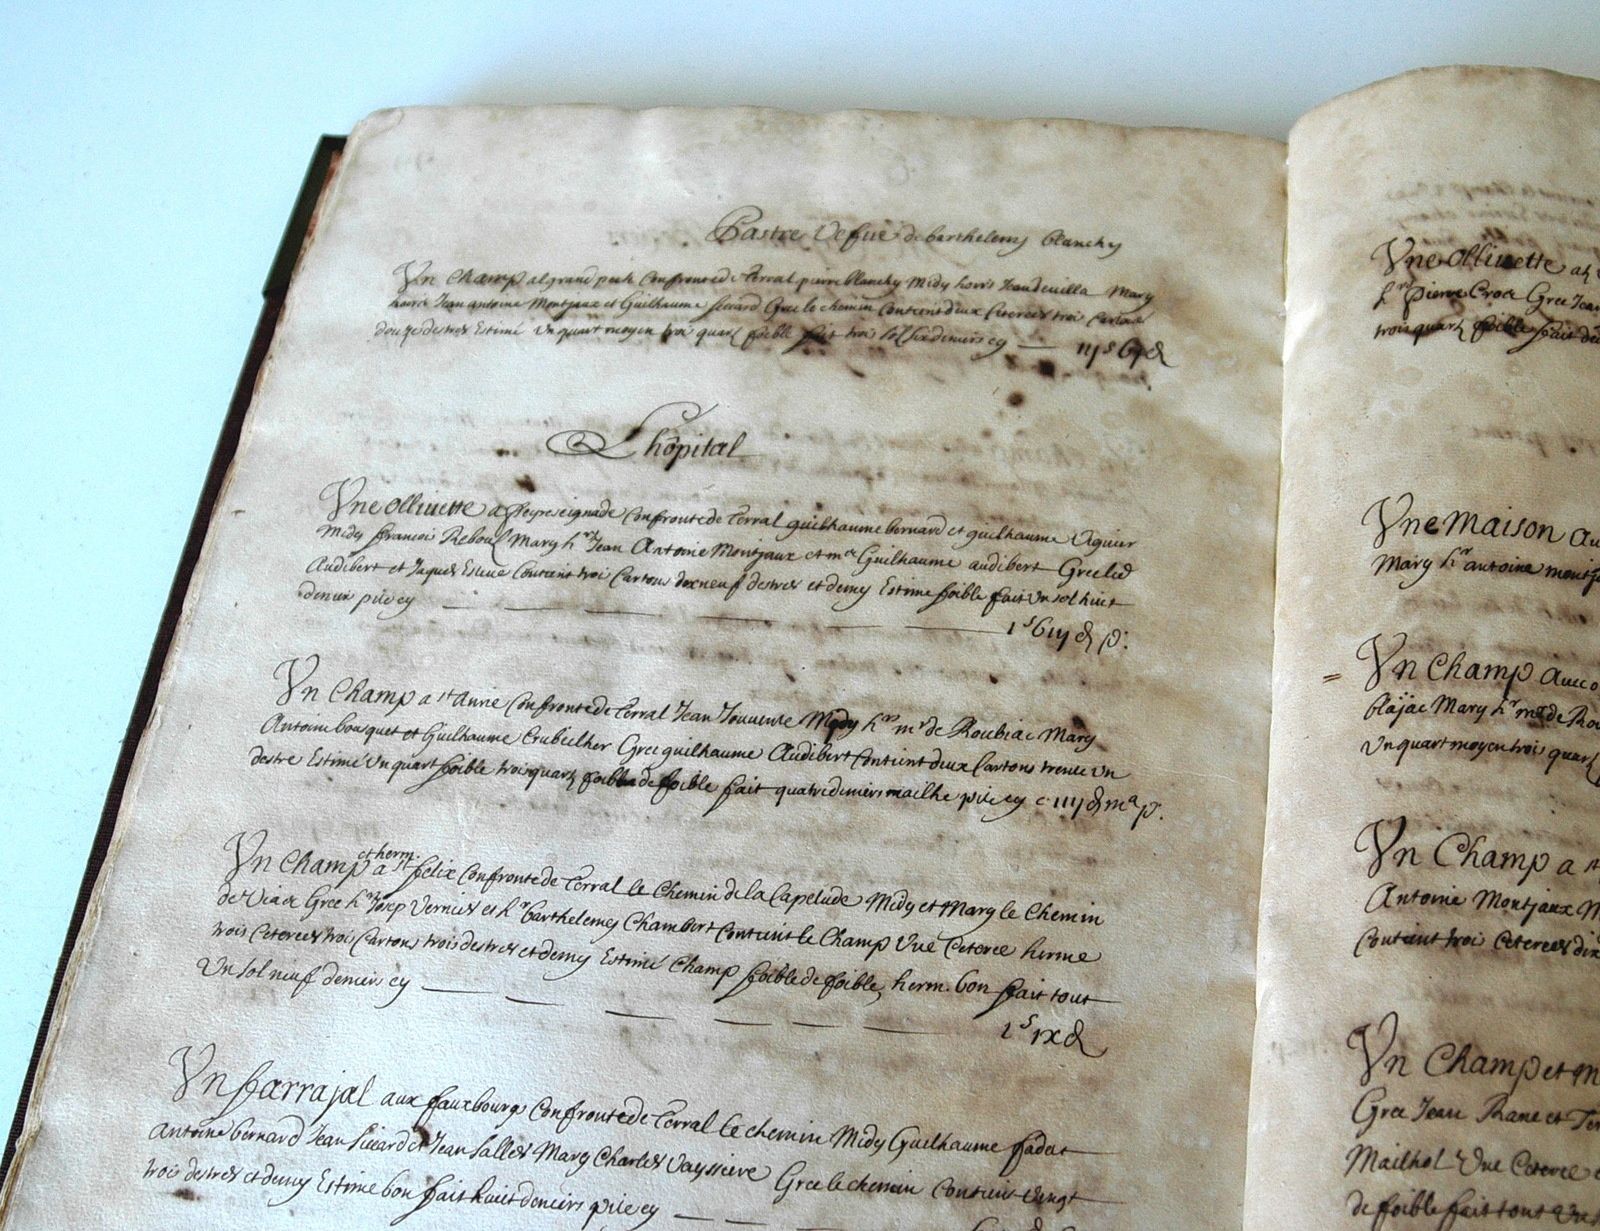 Pastre Vefue de barthelemy blanchy
Vn Champ al grand puch Confronte de Terral pierre blanchy Midy hoirs Jean devilla Mary
hoirs Jean antoine Montjaux et Guilhaume Sicard Grec le chemin Contient deux Ceterees trois Cartons
douze destres Estimé vn quart moyen trois quartz foible fait trois sols six deniers cy iij s vj d
L'hôpital
Vne Olliuette a Peyreseignade Confronte de Terral guilhaume bernard et guilhaume Viguier
Midy francois Reboul Mary hrs Jean Antoine Montjaux et me Guilhaume audibert Grec led
Audibert et Jaques Esteue Contient trois Cartons dixneuf destres et demy Estime foible fait vn sol huit
deniers pite cy 1 s viij d p.
Vn Champ a st Anne Confronte de Terral Jean Jouuenle Midy hrs mr de Roubiac Mary
Antoine bousquet et Guilhaume Crubeilher Grec guilhaume Audibert Contient deux Cartons trente vn
destre Estimé vn quart foible trois quartz foible de foible fait quatre deniers mailhe pite cy iiij d ma p.
et herm
Vn Champ a st felix Confronte de Terral le Chemin de la Capelude Midy et Mary le Chemin
de Viace Grec hrs Josep Vernies et hrs barthelemy Chambert Contient le Champ vne Ceteree herme
trois Ceterees trois Cartons trois destres et demy Estimé Champ foible de foible, herm. bon fait tout
vn sol neuf deniers cy 1 s ix d
Vn farrajal aux fauxbourgs Confronte de Terral le chemin Midy Guilhaume fadat
antoine bernard Jean Sicard et Jean Salles Mary Charles Vayssiere Grec le chemin Contient vingt
trois destres et demy Estime bon fait huit deniers pite cy
Vne Olliuette al
hrs Pierre Croce Grec Jean
trois quartz foible fait
Vne Maison Au
Mary hrs antoine montj
Vn Champ Auec o
blajac Mary hrs mr de Rou
vn quart moyen trois quartz
Vn Champ a st
Antoine Montjaux M
Contient trois Ceterees dix
Vn Champ et M
Grec Jean Rane et Ter
Mailhol Vne Ceteree
de foible fait tout vn s